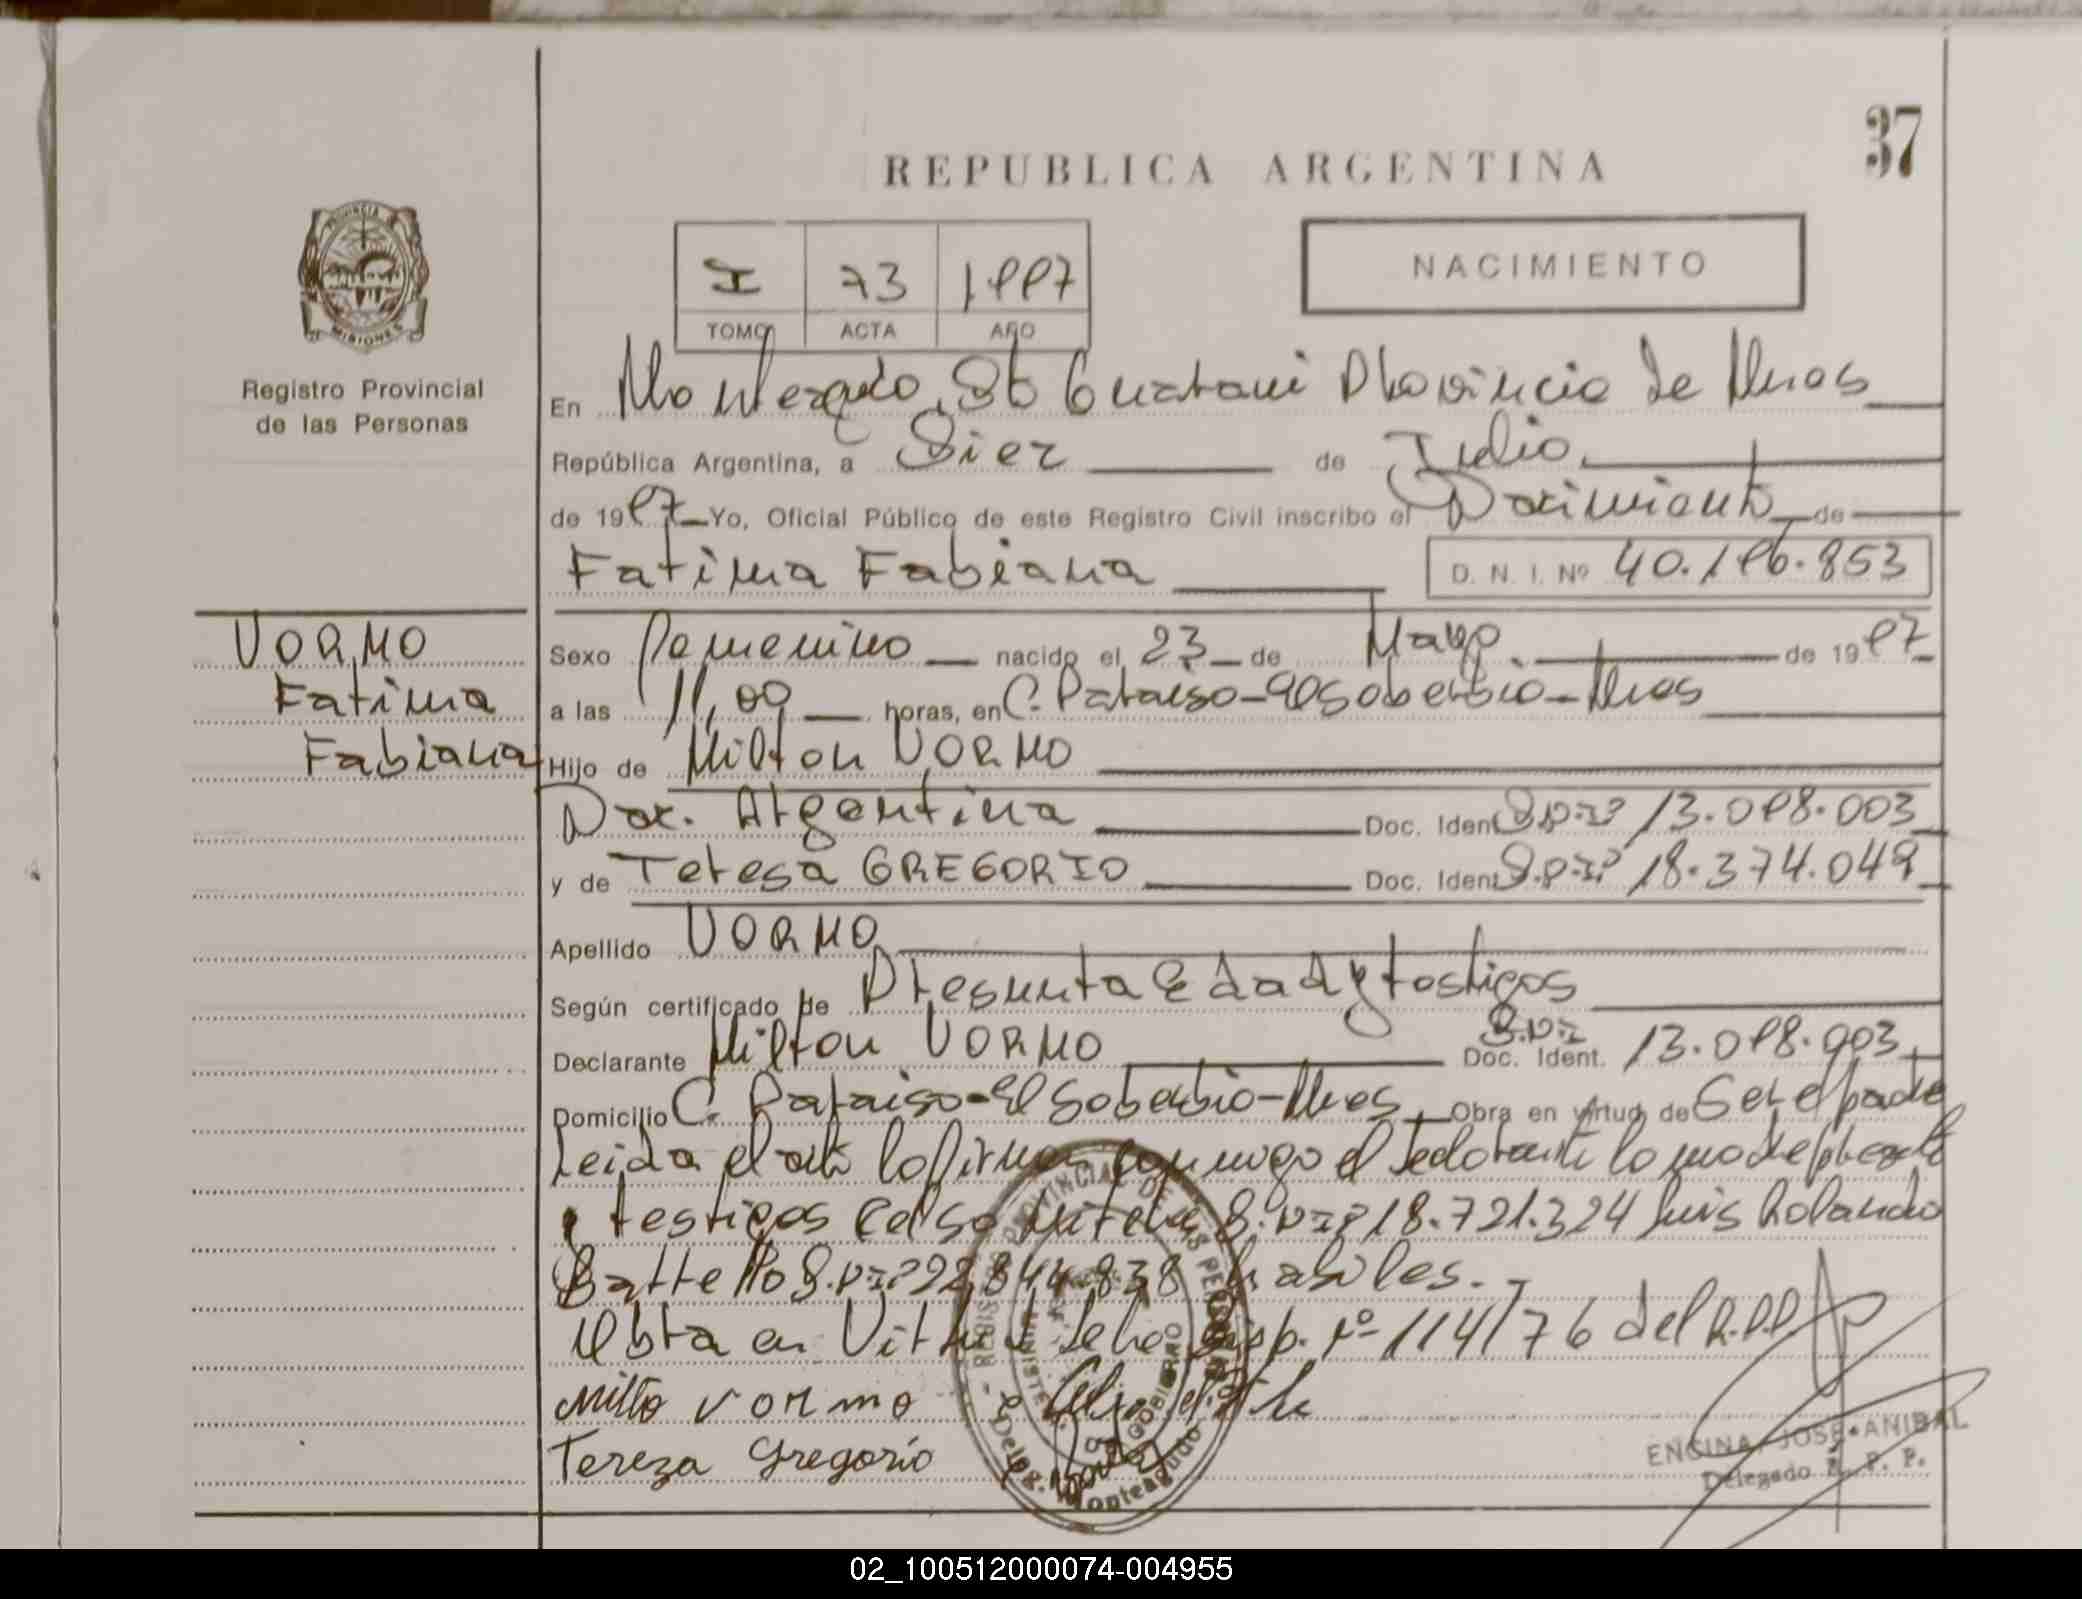 37
REPUBLICA ARGENTINA
NACIMIENTO
I 73 1997
TOMO ACTA AÑO
PROVINCIA
MISIONES
Registro Provincial
de las Personas
En Monteagudo, Dto Guarani Provincia de Mnes
República Argentina, a Diez de Julio
de 1997 Yo, Oficial Público de este Registro Civil inscribo el Nacimiento de
Fatima Fabiana D. N. I. Nº 40.196.853
VORMO
Fatima
Fabiana
Sexo Femenino nacido el 23 de Mayo de 1997
a las 11,00 horas, en C. Paraiso - El Soberbio - Mnes
Hijo de Milton VORMO
Nac. Argentina Doc. Ident D.N.I.º 13.098.003
y de Teresa GREGORIO Doc. Ident D.N.I.º 18.374.049
Apellido VORMO
Según certificado de Presunta Edad y testigos
Declarante Milton VORMO D.N.I Doc. Ident. 13.098.003
Domicilio C. Paraiso - El Soberbio - Mnes Obra en virtud de Ser el padre
Leida el acta la firman conmigo el declarante la madre presente
y testigos Celso D.N.I.º 18.721.324 Luis Rolando
D.N.I.º 22.844.838 habiles.
Obra en Virtud de la Disp. Nº 114/76 del R.P.P
Milto vormo
Tereza Gregorio
ENCINA JOSE ANIBAL
Delegado R. P. P.
REGISTRO PROVINCIAL DE LAS PERSONAS
MINISTERIO DE GOBIERNO
Deleg. Monteagudo
02_100512000074-004955